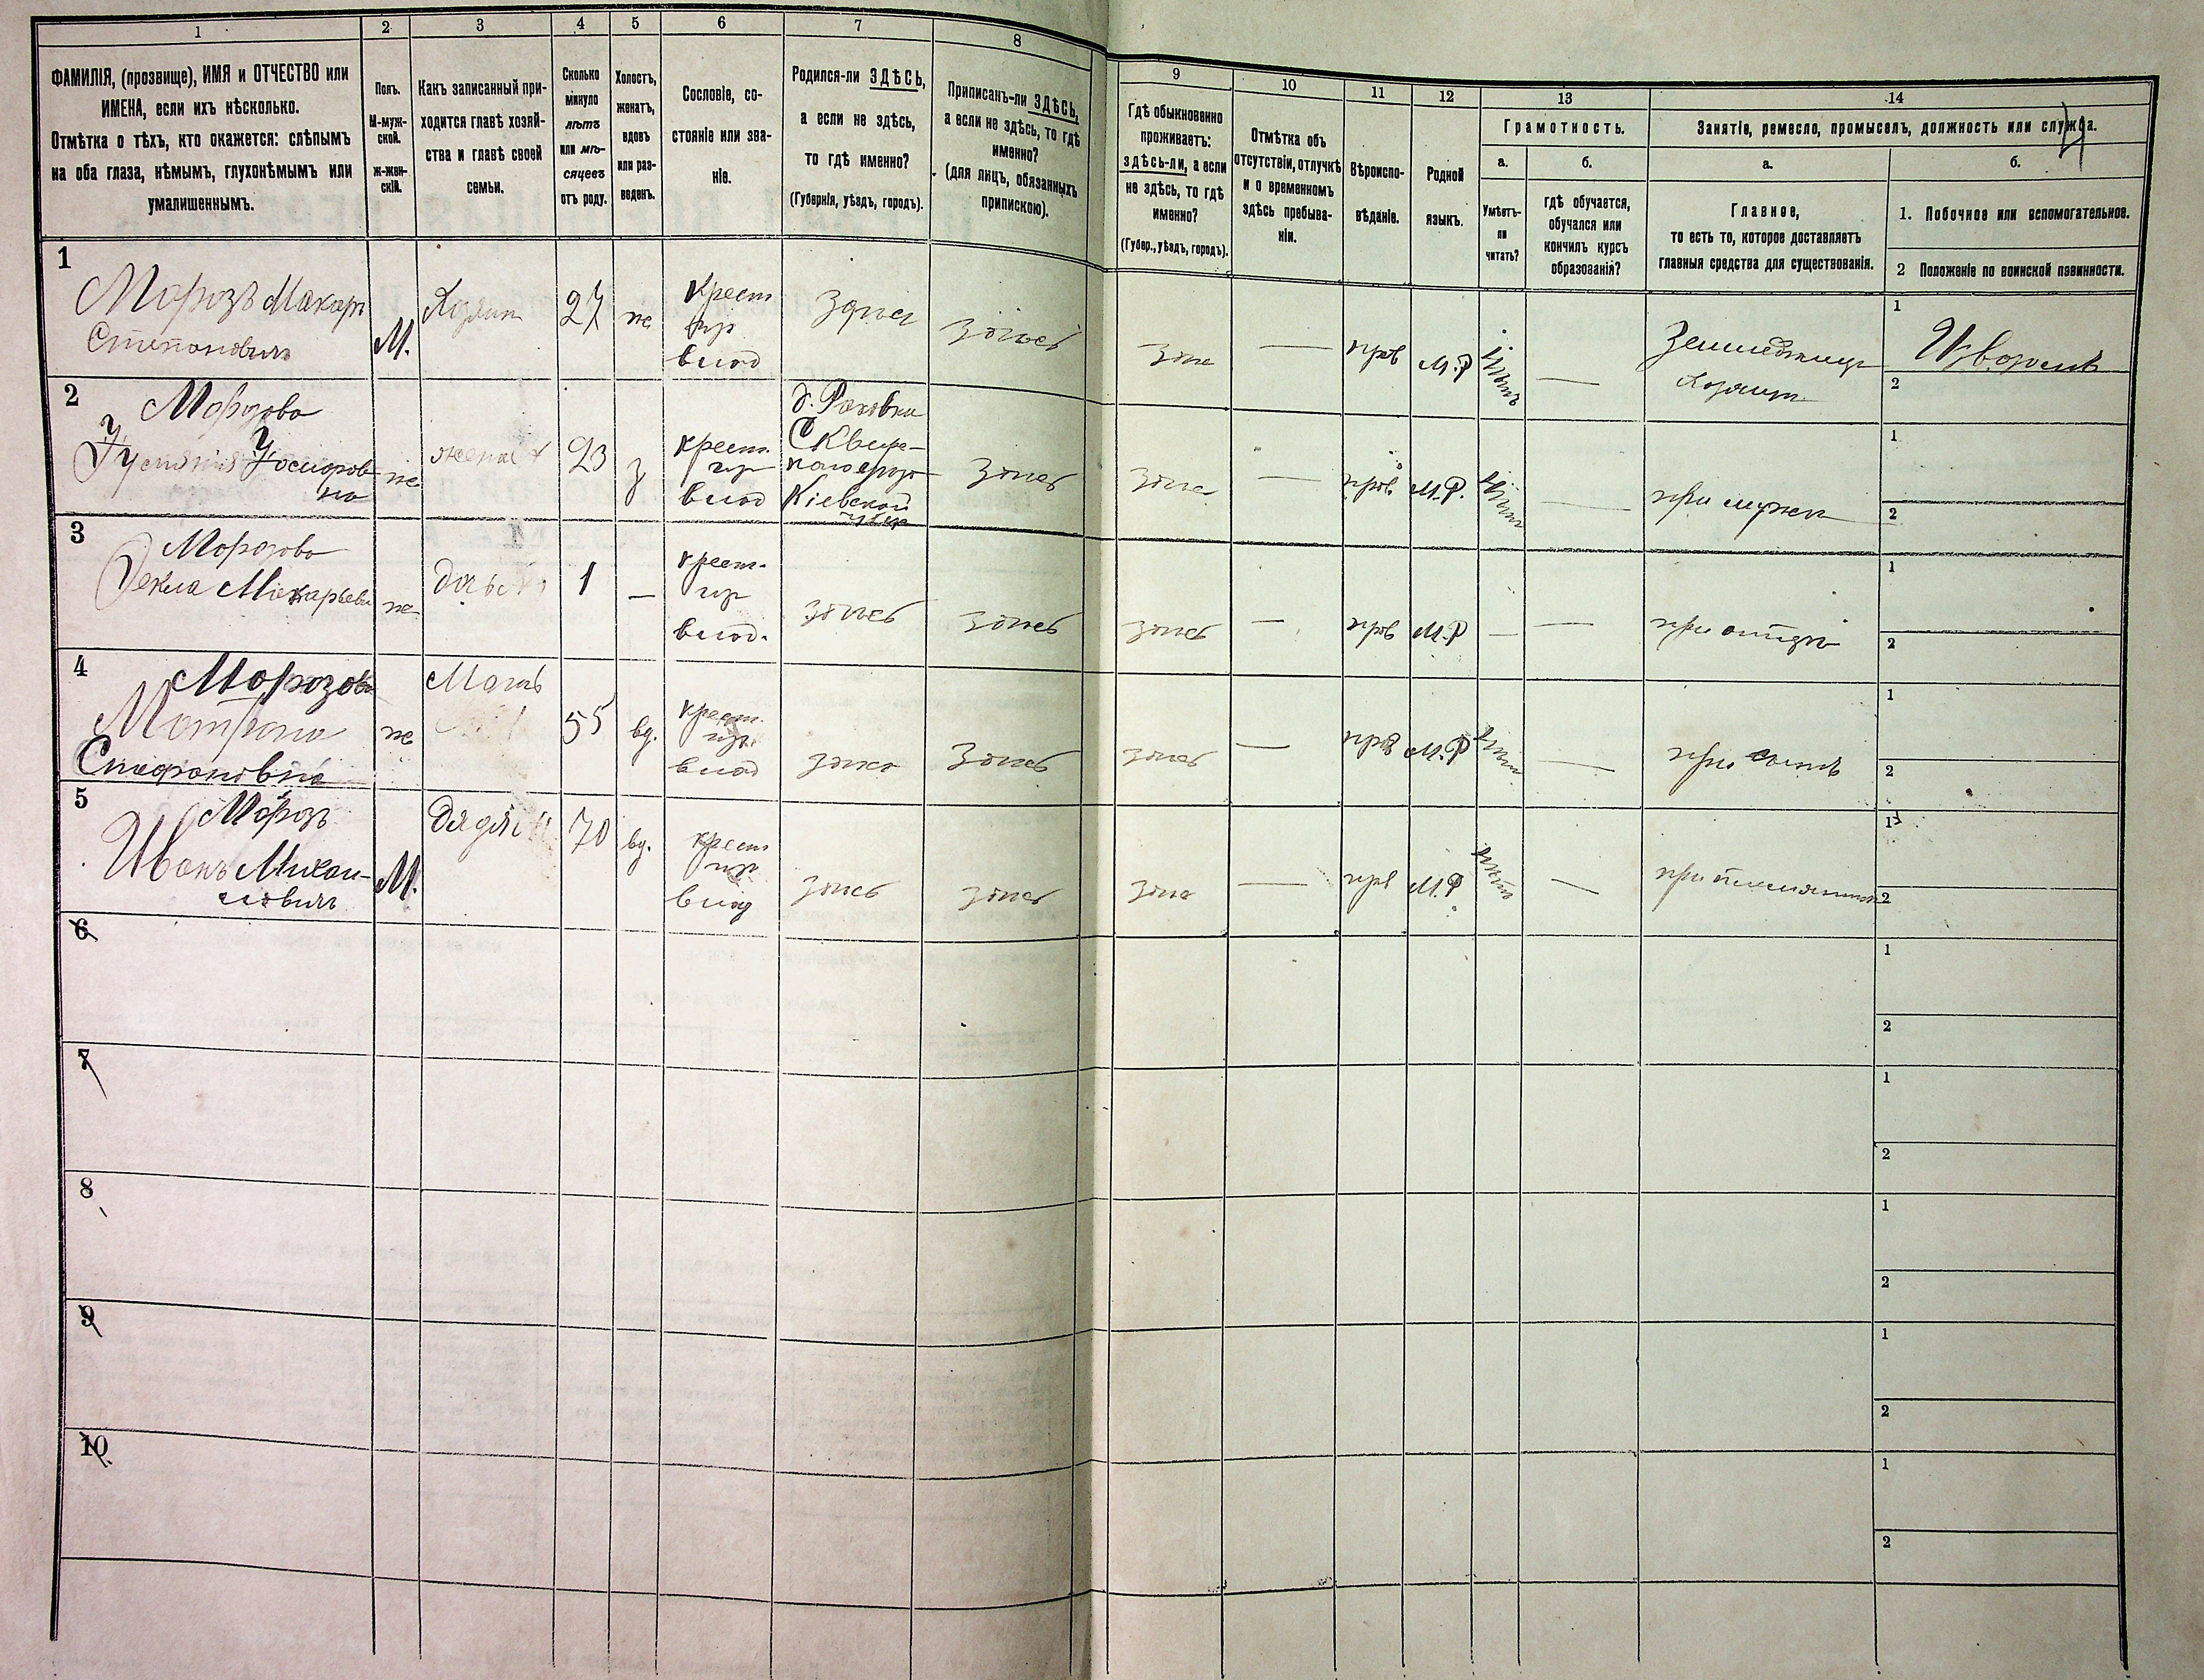 1 2 3 4 5 6 7 8 9 10 11 12 13 14
ФАМИЛІЯ, (прозвище), ИМЯ и ОТЧЕСТВО или
ИМЕНА, если ихъ нѣсколько.
Отмѣтка о тѣхъ, кто окажется: слѣпымъ
на оба глаза, нѣмымъ, глухонѣмымъ или
умалишеннымъ.
Полъ.
М-муж-
ской.
ж-жен-
скій.
Какъ записанный при-
ходится главѣ хозяй-
ства и главѣ своей
семьи.
Сколько
минуло
лѣтъ
или мѣ-
сяцевъ
отъ роду.
Холостъ,
женатъ,
вдовъ
или раз-
веденъ.
Сословіе, со-
стояніе или зва-
ніе.
Родился-ли ЗДѢСЬ,
а если не здѣсь,
то гдѣ именно?
(Губернія, уѣздъ, городъ).
Приписанъ-ли ЗДѢСЬ,
а если не здѣсь, то гдѣ
именно?
(для лицъ, обязанныхъ
припискою).
Гдѣ обыкновенно
проживаетъ:
здѣсь-ли, а если
не здѣсь, то гдѣ
именно?
(Губер., уѣздъ, городъ).
Отмѣтка объ
отсутствіи, отлучкѣ
и о временномъ
здѣсь пребыва-
ніи.
Вѣроиспо-
вѣданіе.
Родной
языкъ.
Грамотность.
а.
Умѣетъ-
ли
читать?
б.
гдѣ обучается,
обучался или
кончилъ курсъ
образованія?
Занятіе, ремесло, промыселъ, должность или служба.
4
а.
Главное,
то есть то, которое доставляетъ
главныя средства для существованія.
б.
1. Побочное или вспомогательное.
2 Положеніе по воинской повинности.
1
Морозъ Макаръ
Степановичъ
М.
Хозяин
27
же
Крест
влад
Здѣсь
Здѣсь
Здѣс
—
прав
М.Р
Земледѣлец
Хозяин
1
2
2
Морозова
Устинія
на
же
жена
23
з
крест.
влад
д. Раковка
Сквир-
Кіевской
Здѣсь
Здѣс
—
прав.
М.Р.
—
при мужѣ
1
2
3
Морозова
Текла Макарьевн
же
дочь
1
—
крест.
влад.
здѣсь
Здѣсь
здѣсь
—
прав
М.Р
—
—
при отцѣ
1
2
4
Морозова
Матрона
же
Мать
55
вд.
крест.
влад
здѣс
Здѣсь
здѣсь
—
прав
М.Р
—
при сынѣ
1
2
5
Морозъ
Иванъ Михаи-
ловичъ
М.
дядя
70
вд.
крест
влад
здѣсь
здѣсь
здѣс
—
прв
М.Р
нѣтъ
—
при племянник
1
2
6
1
2
7
1
2
8
1
2
9
1
2
10
1
2